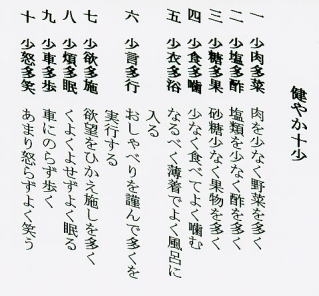 健やか十少
一 少肉多菜 肉を少なく野菜を多く
二 少塩多酢 塩類を少なく酢を多く
三 少糖多果 砂糖少なく果物を多く
四 少食多噛 少なく食べてよく噛む
五 少衣多浴 なるべく薄着でよく風呂に
入る
六 少言多行 おしゃべりを謹んで多くを
実行する
七 少欲多施 欲望をひかえ施しを多く
八 少煩多眠 くよくよせずよく眠る
九 少車多歩 車にのらず歩く
十 少怒多笑 あまり怒らずよく笑う